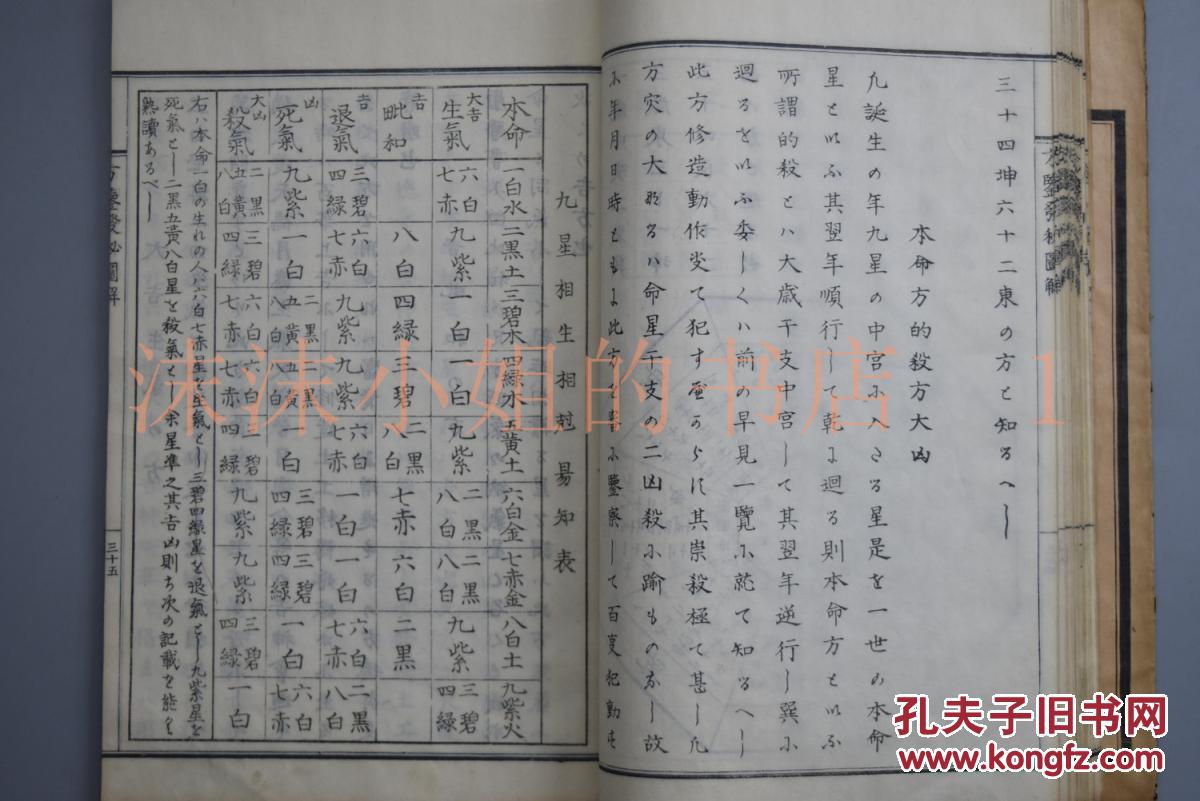 三十四坤六十二東の方と知るへし
本命方的殺方大凶
凢誕生の年九星の中宮ふ入さる星是を一世の本命
星と以ふ其翌年順行して乾ょ迴る則本命方と以ふ
所謂的殺とハ大歳干支中宮して其翌年逆行し巽ふ
迴るを以ふ委しくハ前の早見一覽ふ就て知るへし
此方修造動作筴て犯す
其祟殺極て甚し凢
方灾の大
るハ命星干支の二凶殺ふ踰ものなし故
ふ年月日時ともょ此方を
ふ鑒察して百叓犯動
九星相生相剋易知表
本命 一白水 二黒土 三碧木 四緑木 五黄土 六白金 七赤金 八白土 九紫火
大吉 生氣 六白 七赤 九紫 一白 一白 九紫 二黒 八白 二黒 八白 九紫 三碧 四緑
吉 毗和 八白 四緑 三碧 二黒 八白 七赤 六白 二黒
吉 退氣 三碧 四緑 六白 七赤 九紫 九紫 六白 七赤 一白 一白 六白 七赤 二黒 八白
凶 死氣 九紫 一白 二黒 五黄 八白 二黒 五黄 八白 一白 三碧 四緑 三碧 四緑 一白 六白 七赤
大凶 殺氣 二黒 五黄 八白 三碧 四緑 六白 七赤 六白 七赤 三碧 四緑 九紫 九紫 三碧 四緑 一白
右ハ本命一白の生れの人ハ六白七赤星を生氣とし三碧四緑星を退氣とし九紫星を
死氣とし二黒五黄八白星を殺氣とす余星準之其吉凶則ち次の記載を能々
熟讀あるべし
三十五
沫沫小姐的书店 1
孔夫子旧书网
www.kongfz.com